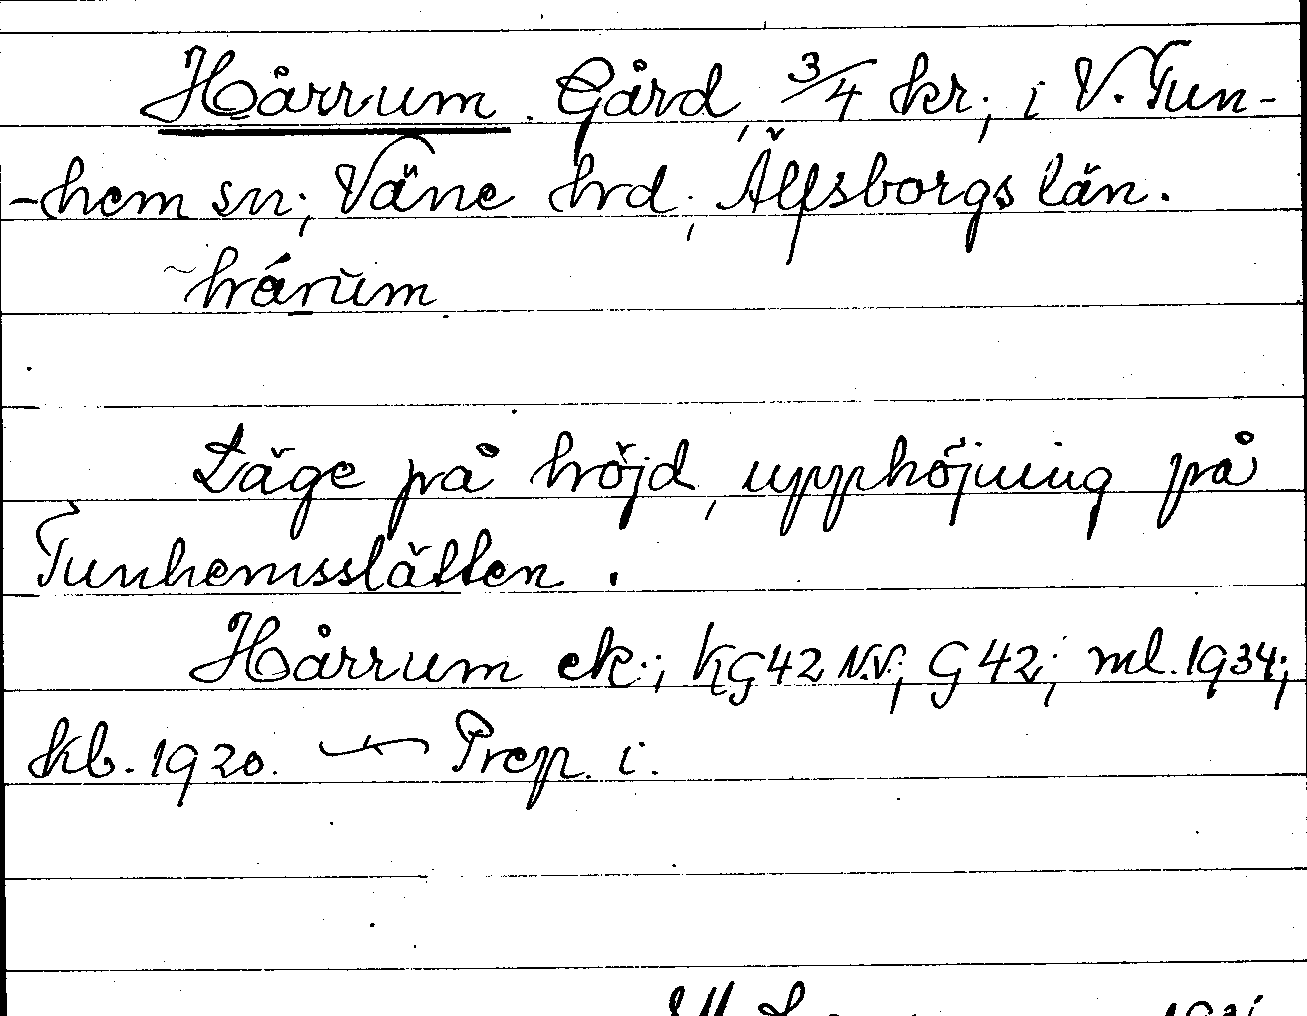 Hårrum. Gård, 3/4 kr., i V. Tun-
-hem sn., Väne hd., Älfsborgs län.
~hárum
Läge på höjd, upphöjning på
Tunhemsslätten.
Hårrum ek.; KG42 N.V.; G42; ml. 1934;
kb. 1920. — Prep. i.